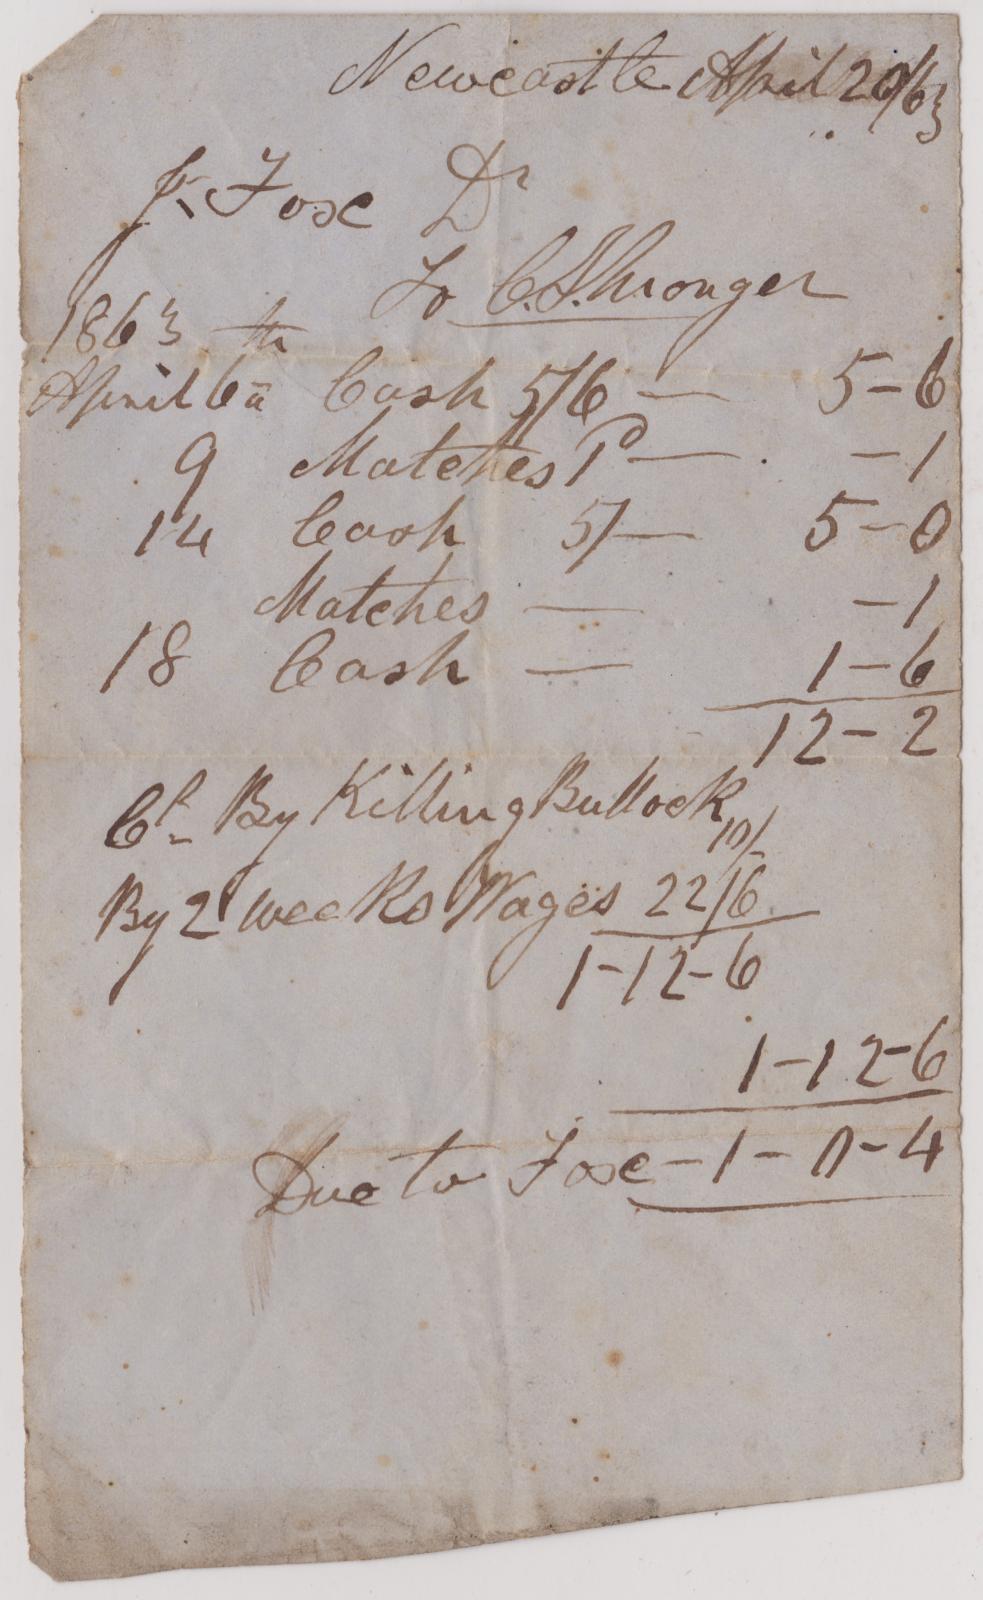 Newcastle April 20/63
J. Foxe Dr
To C. Shronger
1863 th
April 6th Cash 5/6 — 5-6
9 Matches 1d — -1
14 Cash 5/- 5-0
Matches — -1
18 Cash — 1-6
12-2
Cr By Killing Bullock 10/-
By 2 weeks Wages 22/6
1-12-6
1-12-6
Due to Foxe - 1-0-4